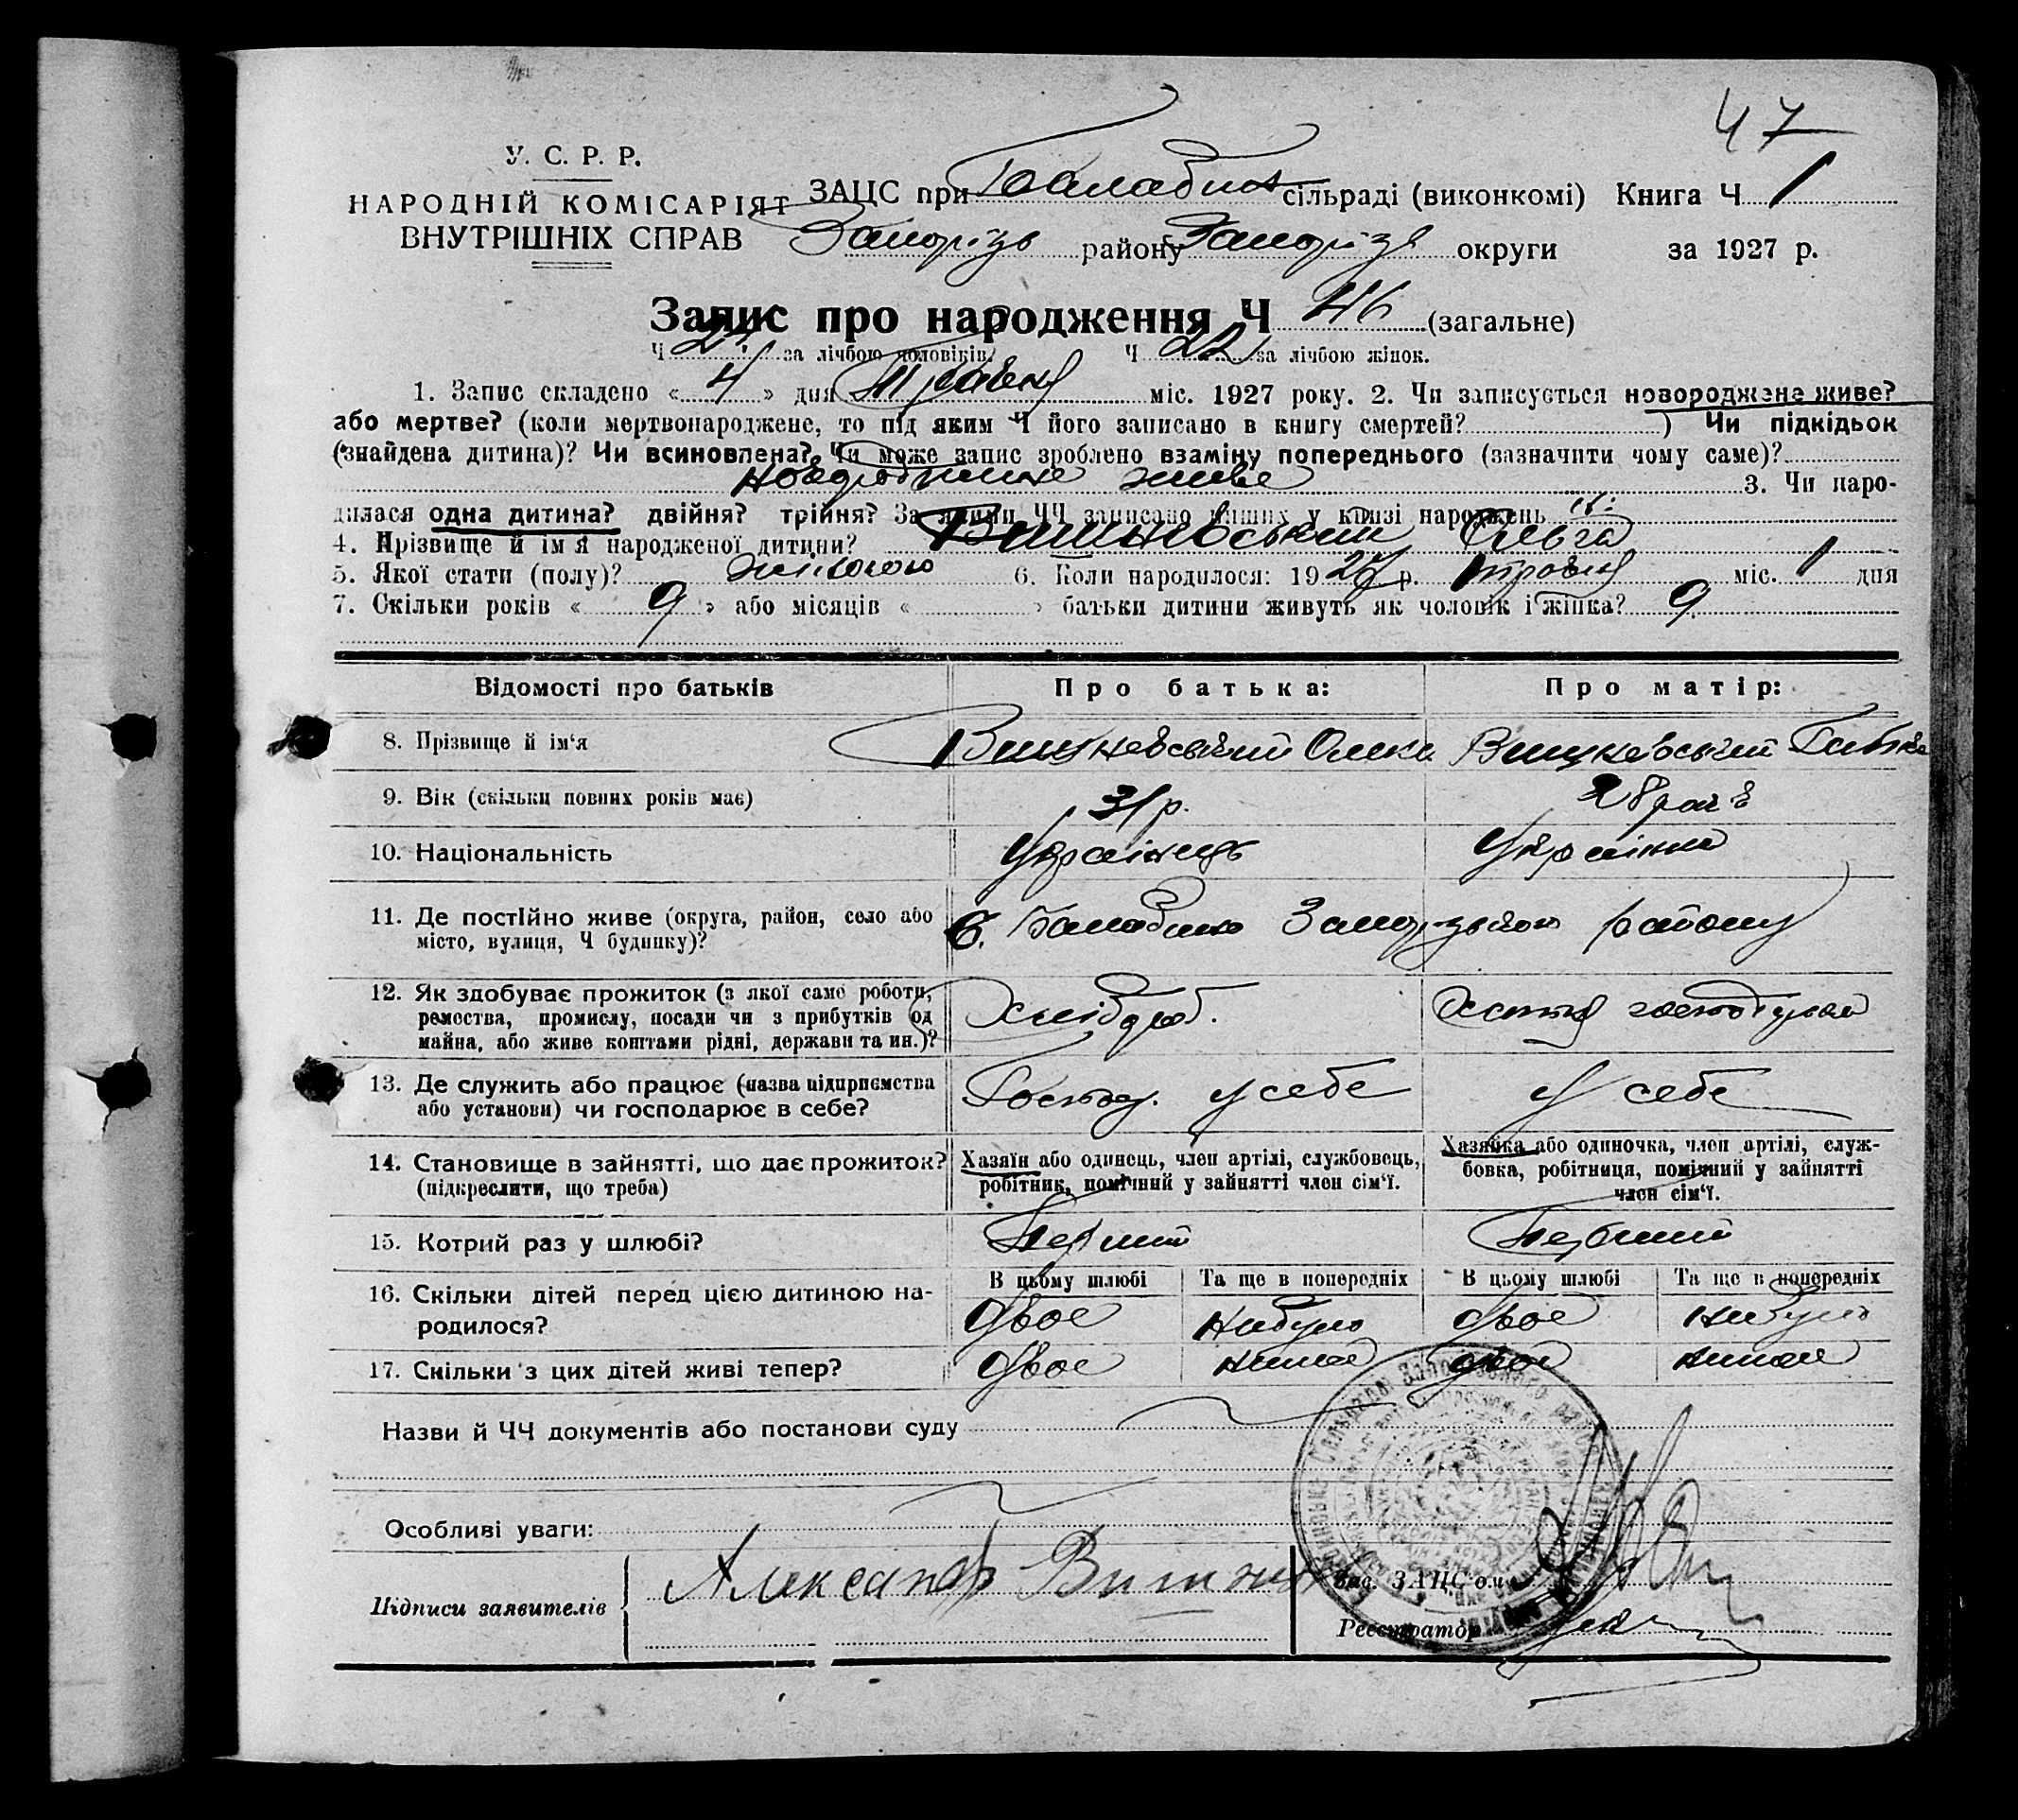 47
У. С. Р. Р.
НАРОДНІЙ КОМІСАРІЯТ
ВНУТРІШНІХ СПРАВ
ЗАЦС при Балабин сільраді (виконкомі) Книга Ч 1
Запоріз району Запоріз округи за 1927 р.
Запис про народження Ч 46 (загальне)
Ч 24 за лічбою чоловіків Ч 22 за лічбою жінок.
1. Запис складено « 4 » дня Травня міс. 1927 року. 2. Чи записується новороджене живе?
або мертве? (коли мертвонароджене, то під яким Ч його записано в книгу смертей? ) Чи підкідьок
(знайдена дитина)? Чи всиновлена? Чи може запис зроблено взаміну попереднього (зазначити чому саме)?
живе 3. Чи наро-
дилася одна дитина? двійня? трійня? За якими ЧЧ записано инших у книзі народжень
4. Прізвище й ім'я народженої дитини? Вишневський Ольга
5. Якої стати (полу)? жіночою 6. Коли народилося: 1927 р. травня міс. 1 дня
7. Скільки років « 9 » або місяців « » батьки дитини живуть як чоловік і жінка? 9
Відомості про батьків
Про батька:
Про матір:
8. Прізвище й ім'я
Вишневський Олекс
Вишневський
9. Вік (скільки повних років має)
31 р.
28 рок
10. Національність
Українець
Українка
11. Де постійно живе (округа, район, село або
місто, вулиця, Ч будинку)?
С. Балабино Запорізького району
12. Як здобуває прожиток (з якої саме роботи,
ремества, промислу, посади чи з прибутків од
майна, або живе коштами рідні, держави та ин.)?
Хлібороб.
Хатня
13. Де служить або працює (назва підприємства
або установи) чи господарює в себе?
Господ. у себе
У себе
14. Становище в зайнятті, що дає прожиток?
(підкреслити, що треба)
Хазяїн або одинець, член артілі, службовець,
робітник, помічний у зайнятті член сім'ї.
Хазяйка або одиночка, член артілі, служ-
бовка, робітниця, помічний у зайнятті
член сім'ї.
15. Котрий раз у шлюбі?
Первий
16. Скільки дітей перед цією дитиною на-
родилося?
В цьому шлюбі Та ще в попередніх В цьому шлюбі Та ще в попередніх
двое небуло двое небуло
17. Скільки з цих дітей живі тепер?
двое немае двое немае
Назви й ЧЧ документів або постанови суду
Особливі уваги:
Підписи заявителів
Александр
Зав. ЗАЦС'ом
Реєстратор